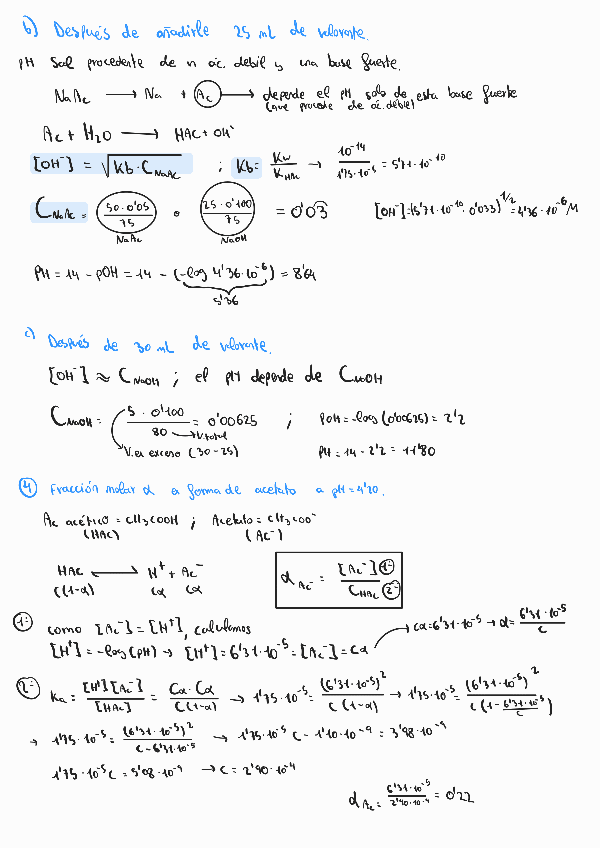 b) Después de añadirle 25 mL de valorante.
PH Sal procedente de un ác. debil y una base fuerte.
NaAc → Na + Ac → depende el pH solo de esta base fuerte
(que procede de ác. debil)
Ac + H2O → HAC + OH⁻
[OH⁻] = √(Kb · C NaAc) ; Kb = Kw / K HAc → 10⁻¹⁴ / 1'75·10⁻⁵ = 5'71·10⁻¹⁰
C NaAc = 50·0'05 / 75 · 25·0'100 / 75 = 0'03 [OH⁻] = (5'71·10⁻¹⁰ · 0'033)^1/2 = 4'36·10⁻⁶ M
NaAc NaOH
PH = 14 - pOH = 14 - (-log 4'36·10⁻⁶) = 8'64
5'36
c) Después de 30 mL de valorante.
[OH⁻] ≈ C NaOH ; el pH depende de C NaOH
C NaOH = 5 · 0'100 / 80 = 0'00625 ; POH = -log (0'00625) = 2'2
V.total
V. en exceso (30-25) PH = 14 - 2'2 = 11'80
4 Fracción molar α a forma de acetato a pH = 4'20.
Ac acético = CH3COOH ; Acetato = CH3COO⁻
(HAC) (AC⁻)
HAC ⟷ H⁺ + Ac⁻
C(1-α) Cα Cα
α Ac⁻ = [Ac⁻] 1 / C HAc 2
1 como [Ac⁻] = [H⁺], calculamos
[H⁺] = -log(PH) → [H⁺] = 6'31·10⁻⁵ = [Ac⁻] = Cα → Cα = 6'31·10⁻⁵ → α = 6'31·10⁻⁵ / C
2 Ka = [H⁺][Ac⁻] / [HAC] = Cα·Cα / C(1-α) → 1'75·10⁻⁵ = (6'31·10⁻⁵)² / C(1-α) → 1'75·10⁻⁵ = (6'31·10⁻⁵)² / C(1 - 6'31·10⁻⁵ / C)
→ 1'75·10⁻⁵ = (6'31·10⁻⁵)² / C - 6'31·10⁻⁵ → 1'75·10⁻⁵ C - 1'10·10⁻⁹ = 3'98·10⁻⁹
1'75·10⁻⁵ C = 5'08·10⁻⁹ → C = 2'90·10⁻⁴
α Ac = 6'31·10⁻⁵ / 2'90·10⁻⁴ = 0'22